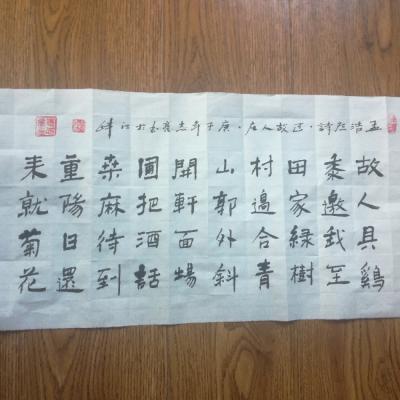 故人具鷄
黍邀我至
田家綠樹
村邊合青
山郭外斜
開軒面場
圃把酒話
桑麻待到
重陽日還
来就菊花
孟浩然詩·過故人庄·庚子年